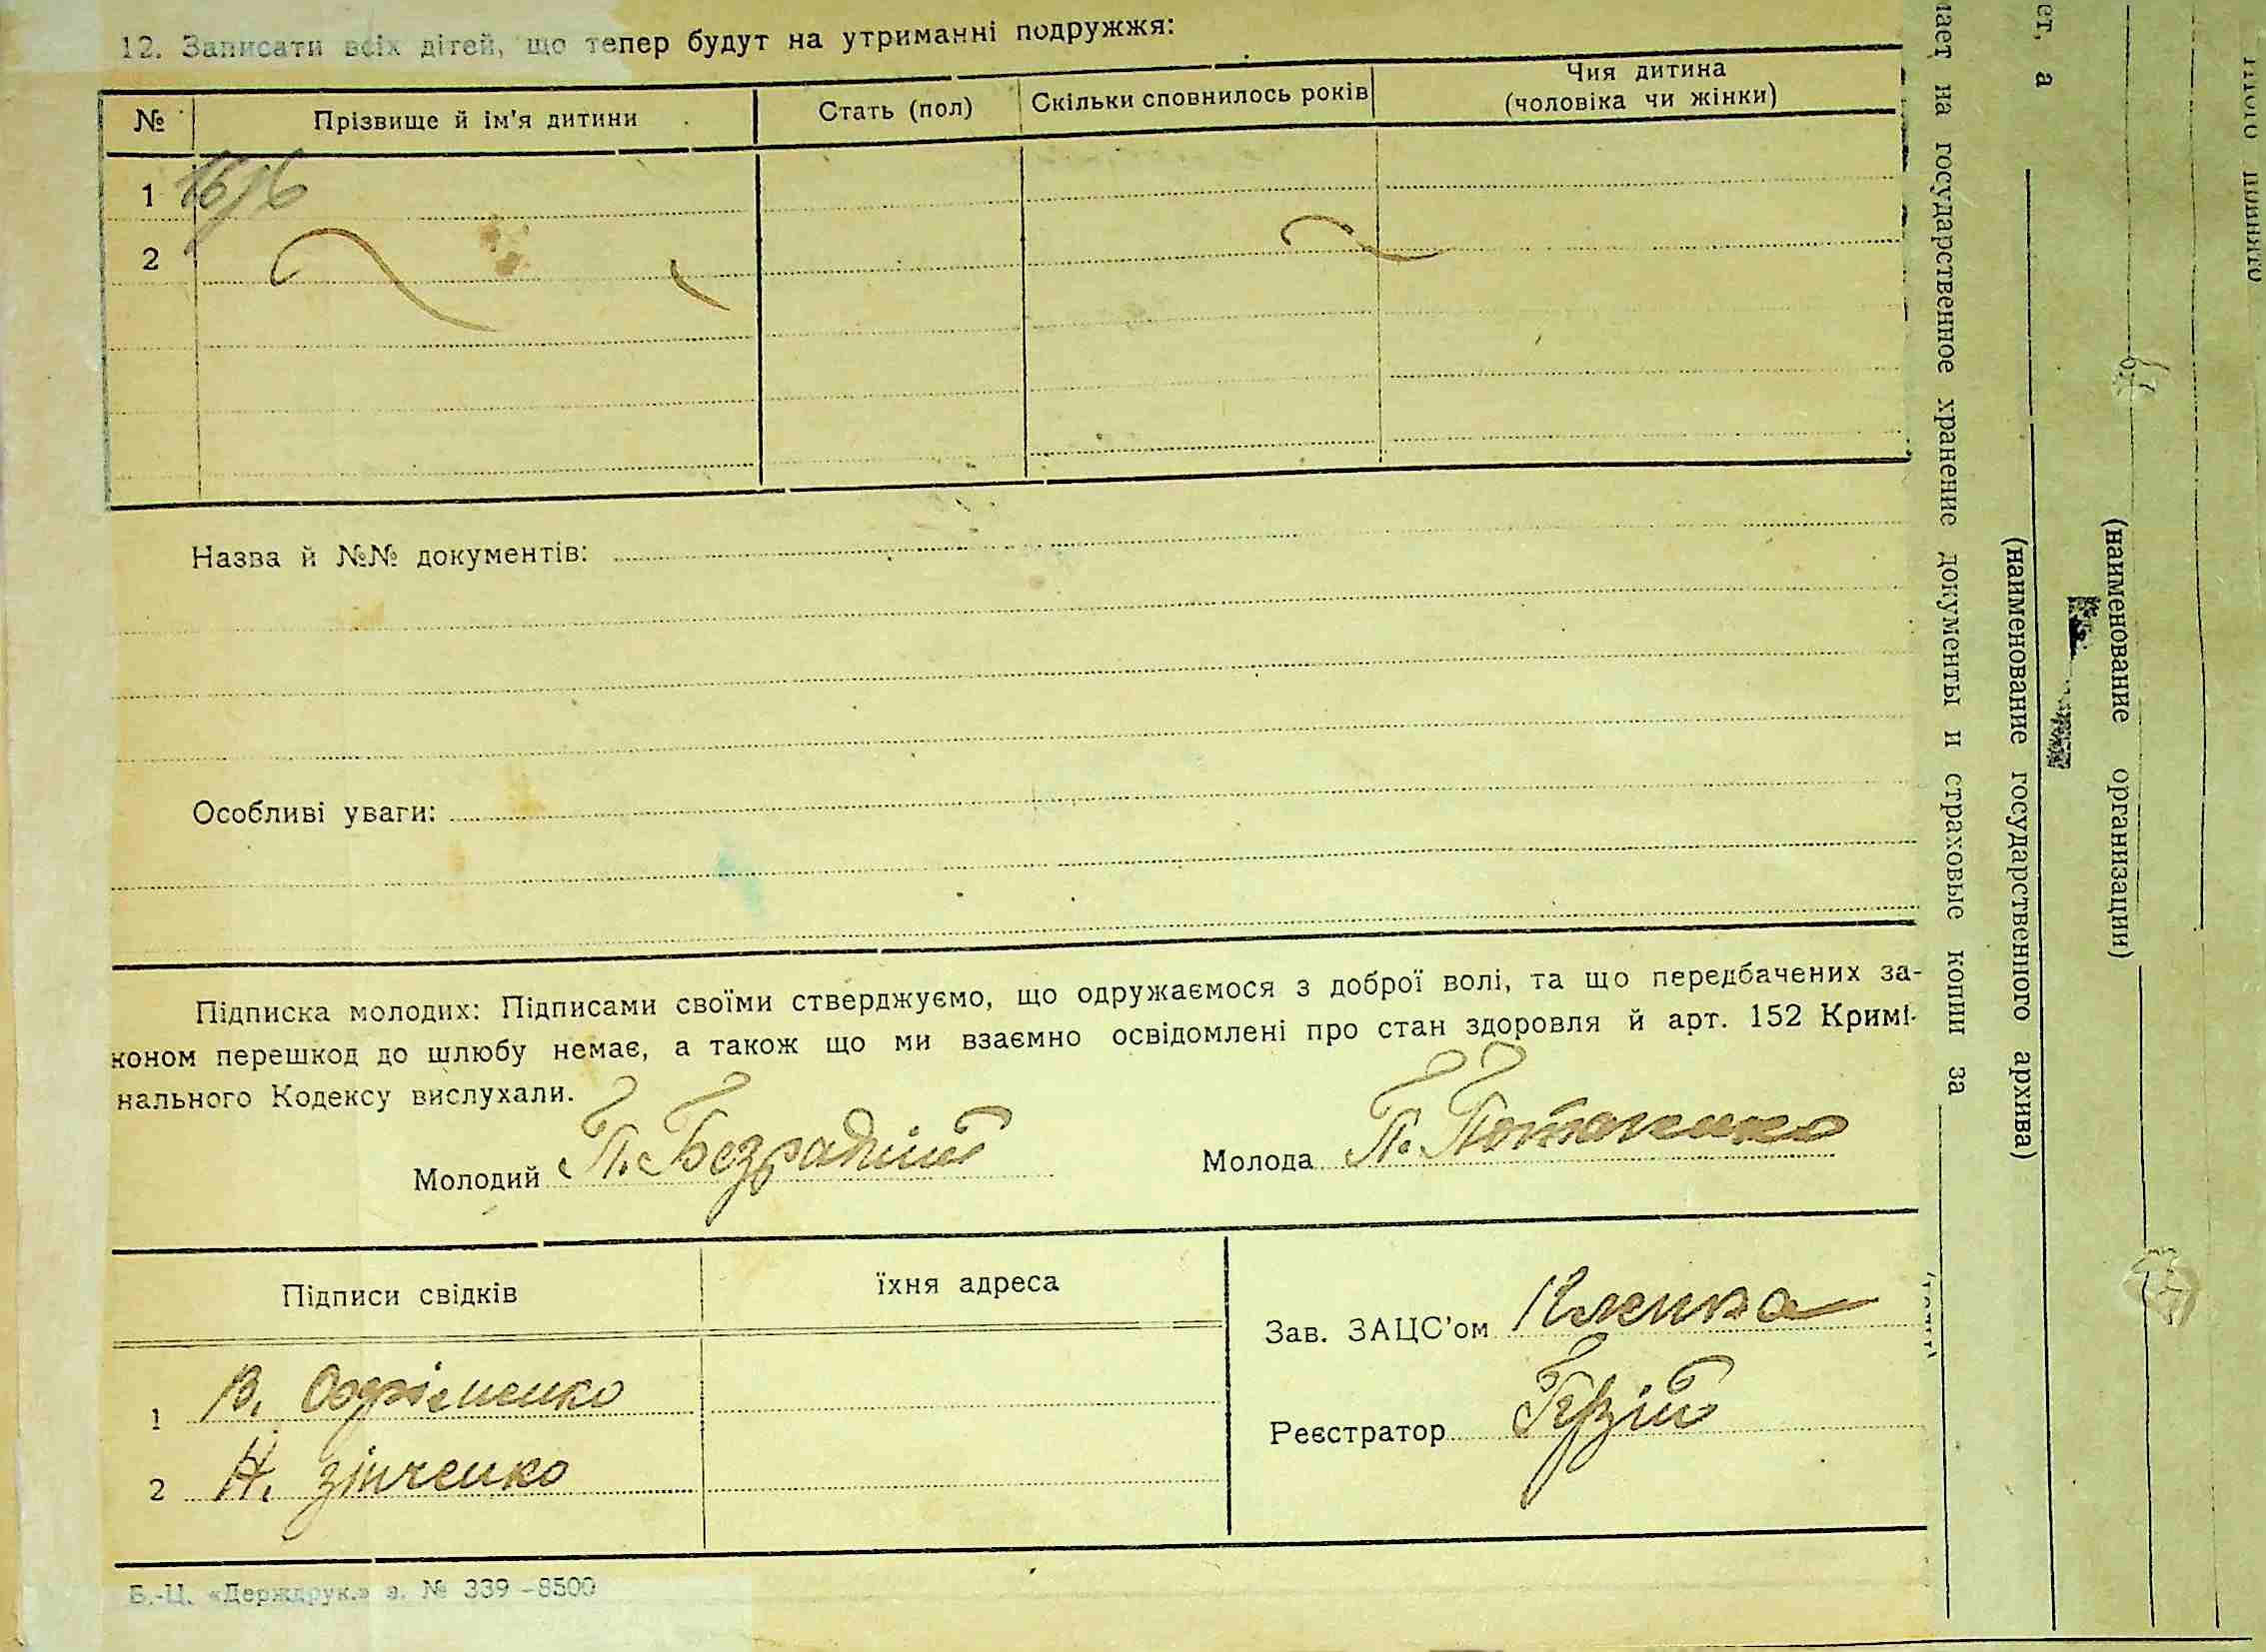 12. Записати всіх дітей, що тепер будут на утриманні подружжя:
№ Прізвище й ім'я дитини Стать (пол) Скільки сповнилось років Чия дитина
(чоловіка чи жінки)
1
2
Назва й №№ документів:
Особливі уваги:
Підписка молодих: Підписами своїми стверджуємо, що одружаємося з доброї волі, та що передбачених за-
коном перешкод до шлюбу немає, а також що ми взаємно освідомлені про стан здоровля й арт. 152 Кримі-
нального Кодексу вислухали.
Молодий П. Безрадній Молода П. Потапенко
Підписи свідків їхня адреса
Зав. ЗАЦС'ом
1 В.
Реєстратор
2 Н. Зінченко
Б.-Ц. «Держдрук.» з. № 339-8500
на государственное хранение документы и страховые копии за
ет, а
(наименование государственного архива)
(наименование организации)